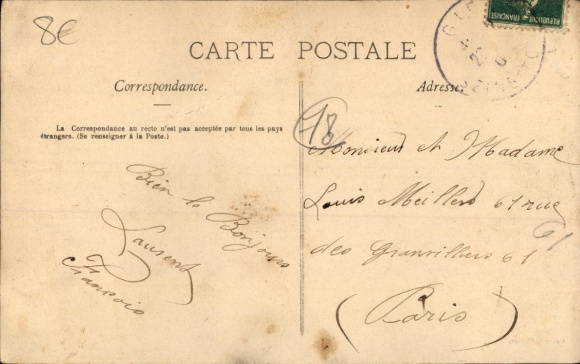 8€
RÉPUBLIQUE FRANÇAISE
CARTE POSTALE
Correspondance.
Adresse
La Correspondance au recto n'est pas acceptée par tous les pays
étrangers. (Se renseigner à la Poste.)
18
Bien le Bonjour
Laurent
François
Monsieur et Madame
Louis Meillerd 61 rue
des Gravilliers 61
61
(Paris)